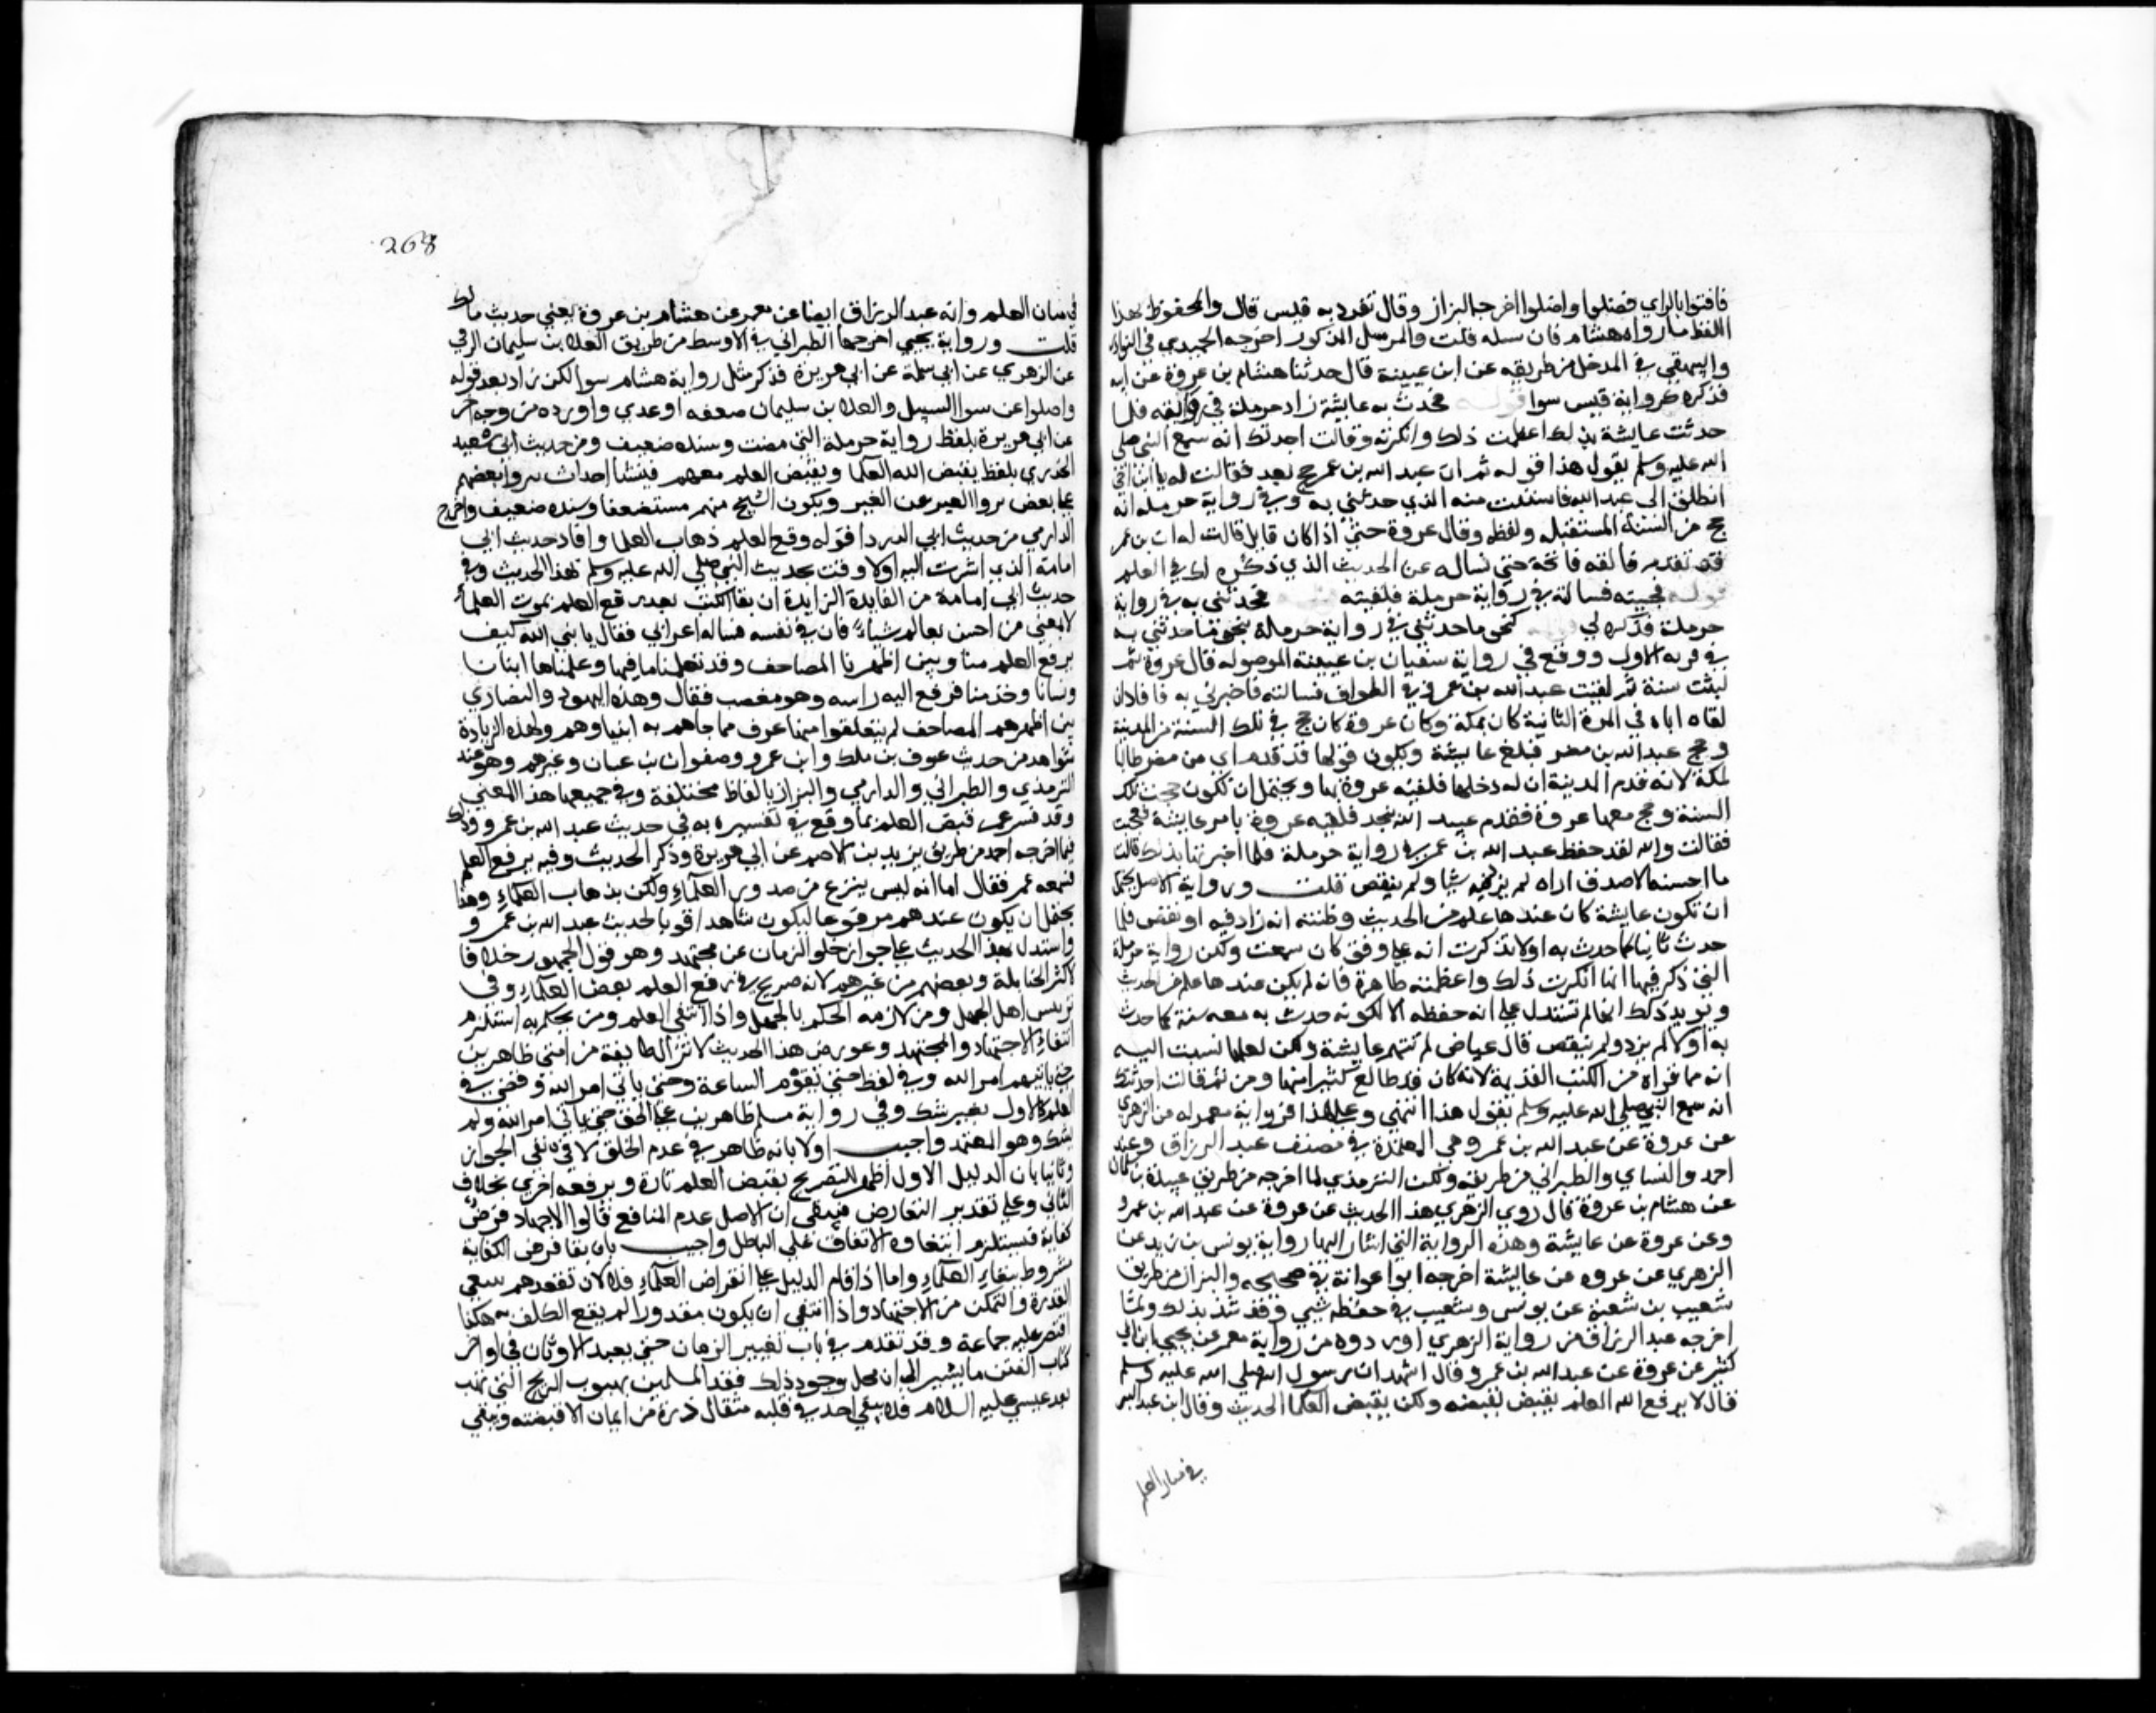 فافتوا بالراي فضلوا واضلوا اخرجه البزاز وقال تفرد به قيس قال والمحفوظ بهذا
اللفظ ما رواه هشام فارسله قلت والمرسل المذكور اخرجه الحميدي في النوادر
والبيهقي في المدخل من طريقه عن ابن عيينة قال حدثنا هشام بن عروة عن ابيه
فذكره كرواية قيس سوا قوله فحدثت به عايشة زاد حرملة في روايته فلما
حدثت عايشة بذلك اعظمت ذلك وانكرته وقالت احدثك انه سمع النبي صلى
الله عليه وسلم يقول هذا قوله ثم ان عبد الله بن عمرو حج بعد فقالت له يا ابن اختي
انطلق الى عبد الله فاستثبت منه الذي حدثتني به وفي رواية حرملة انه
حج من السنة المستقبلة ولفظه وقال عروة حتى اذا كان قابل قالت له ان بن عمرو
قد تقدم فالقه فاتحه حتى تساله عن الحديث الذي ذكره لك في العلم
قوله فجيته فسالته في رواية حرملة فلقيته قوله فحدثني به في رواية
حرملة فذكره لي قوله كنحو ما حدثني في رواية حرملة بنحو ما حدثني به
في مرته الاولى ووقع في رواية سفيان بن عيينة الموصولة قال عروة ثم
لبثت سنة ثم لقيت عبد الله بن عمرو في الطواف فسالته فاخبرني به فافادان
لقاه اياه في المرة الثانية كان بمكة وكان عروة كان حج في تلك السنة من المدينة
وحج عبد الله بن مصر فبلغ عايشة ويكون قولها قد قدم اي من مصر طالبا
لمكة لانه قدم المدينة ان لو دخلها فلقيه عروة بها ويحتمل ان تكون حجت تلك
السنة وحج معها عروة فقدم عبد الله بعد فلقيه عروة بامر عايشة فعجبت
فقالت والله لقد حفظ عبد الله بن عمرو في رواية حرملة فلما اخبرتها بذلك قالت
ما احسبه الا صدق اراه لم يزد فيه شيا ولم ينقص قلت ورواية الاصل يحتمل
ان تكون عايشة كان عندها علم من الحديث وظنت انه زاد فيه او نقص فلما
حدث ثانيا كما حدث به اولا تذكرت انه على وفق ما كان سمعت ولكن رواية حرملة
التي ذكر فيها انها انكرت ذلك واعظمته ظاهرة فانه لم يكن عندها علم من الحديث
ويويد ذلك انها لم تستدل على انه حفظه الا لكونه حدث به بعد سنة كما حدث
به اولا لم يزد ولم ينقص قال عياض لم تتهم عايشة ولكن لعلها نسبت اليه
انه مما قراه من الكتب القديمة لانه كان قد طالع كثيرا منها ومن ثم قالت احدثك
انه سمع النبي صلى الله عليه وسلم يقول هذا انتهى وعلى هذا فرواية معمر له من الزهري
عن عروة عن عبد الله بن عمرو هي المعتمدة في مصنف عبد الرزاق وعند
احمد والنساي والطبراني من طريقه ولكن الترمذي لما اخرجه من طريق عبدة بن سليمان
عن هشام بن عروة قال روى الزهري هذا الحديث عن عروة عن عبد الله بن عمرو
وعن عروة عن عايشة وهذه الرواية التي اشار اليها رواية يونس بن يزيد عن
الزهري عن عروة عن عايشة اخرجه ابوا عوانة في صحيحه والبزار من طريق
شعيب بن شعبة عن يونس وشعيب في حفظه شي وقد شذ بذلك ولما
اخرجه عبد الرزاق من رواية الزهري اورده من رواية معمر عن يحيى بن ابي
كثير عن عروة عن عبد الله بن عمرو قال اشهد ان رسول الله صلى الله عليه وسلم
قال لا يرفع الله العلم بقبض يقبضه ولكن يقبض العلما الحديث وقال ابن عبد البر
في بيان العلم
268
في بيان العلم رواه عبد الرزاق ايضا عن معمر عن هشام بن عروة بمعنى حديث مالك
قلت ورواية يحيى اخرجها الطبراني في الاوسط من طريق العلا بن سليمان الرقي
عن الزهري عن ابي سلمة عن ابي هريرة فذكر مثل رواية هشام سوا لكن زاد بعد قوله
واضلوا عن سوا السبيل والعلا بن سليمان ضعفه ابن عدي واورده من وجه اخر
عن ابي هريرة بلفظ رواية حرملة التي مضت وسنده ضعيف ومن حديث ابي سعيد
الخدري بلفظ يقبض الله العلما ويقبض العلم معهم فينشأ احداث ينزوا بعضهم
على بعض نزوا العير عن العير ويكون الشيخ منهم مستضعفا وسنده ضعيف واخرج
الدارمي من حديث ابي الدردا قوله رفع العلم ذهاب العلما وافاد حديث ابي
امامة الذي اشرت اليه اولا وقت تحديث النبي صلى الله عليه وسلم بهذا الحديث وفي
حديث ابي امامة من الفايدة الزايدة ان بقا الكتب بعد رفع العلم بموت العلماء
لا يغني من ليس بعالم شياء فان في نفسه فساله اعرابي فقال يا نبي الله كيف
يرفع العلم منا وبين اظهرنا المصاحف وقد تعلمنا ما فيها وعلمناها ابنانا
ونسانا وخدمنا فرفع اليه راسه وهو مغضب فقال وهذه اليهود والنصارى
بين اظهرهم المصاحف لم يتعلقوا منها بحرف مما جاهم به انبياوهم ولهذه الزيادة
شواهد من حديث عوف بن ملك وابن عمرو وصفوان بن عسال وغيرهم وهو عند
الترمذي والطبراني والدارمي والبزاز بالفاظ مختلفة وفي جميعها هذا المعنى
وقد فسر عمر قبض العلم بما وقع في تفسيره به في حديث عبد الله بن عمرو وذلك
فيما اخرجه احمد من طريق يزيد بن الاصم عن ابي هريرة وذكر الحديث وفيه يرفع العلم
فسمعه عمر فقال اما انه ليس ينزع من صدور العلماء ولكن بذهاب العلماء وهذا
يحتمل ان يكون عند عمر مرفوعا ليكون شاهدا قويا لحديث عبد الله بن عمرو
واستدل بهذا الحديث على جواز خلو الزمان عن مجتهد وهو قول الجمهور خلافا
لاكثر الحنابلة وبعضهم من غيرهم لانه صريح في رفع العلم بقبض العلماء وفي
ترييس اهل الجهل ومن لازمه الحكم بالجهل واذا انتفى العلم ومن يحكم به استلزم
انتفاء الاجتهاد والمجتهد وعورض هذا الحديث لا تزال طايفة من امتي ظاهرين
حتى ياتيهم امر الله وفي لفظ حتى تقوم الساعة وحتى ياتي امر الله ومضى في
العلم كالاول بغير شك وفي رواية مسلم ظاهرين على الحق حتى ياتي امر الله ولم
يشك وهو المعتمد واجيب اولا بانه ظاهر في عدم الخلو لا في نفي الجواز
وثانيا بان الدليل الاول اظهر للتصريح بقبض العلم تارة وبرفعه اخرى بخلاف
الثاني وعلى تقدير التعارض فيبقى ان الاصل عدم المانع قالوا الاجتهاد فرض
كفاية فيستلزم انتفاوه الاتفاق على الباطل واجيب بان بقا فرض الكفاية
مشروط ببقاء العلماء واما اذا قام الدليل على انقراض العلماء فلا لان بفقدهم تنتفي
القدرة والتمكن من الاجتهاد واذا انتفى ان يكون مقدورا لم يقع التكليف به هكذا
اقتصر عليه جماعة وقد تقدم في باب تغيير الزمان حتى يعبد الاوثان في اواخر
كتاب الفتن ما يشير الى ان محل وجود ذلك فقد المسلمين بهبوب الريح التي تهب
بعد عيسى عليه السلام فلا يبقى احد في قلبه مثقال ذرة من ايمان الا قبضته ويبقى